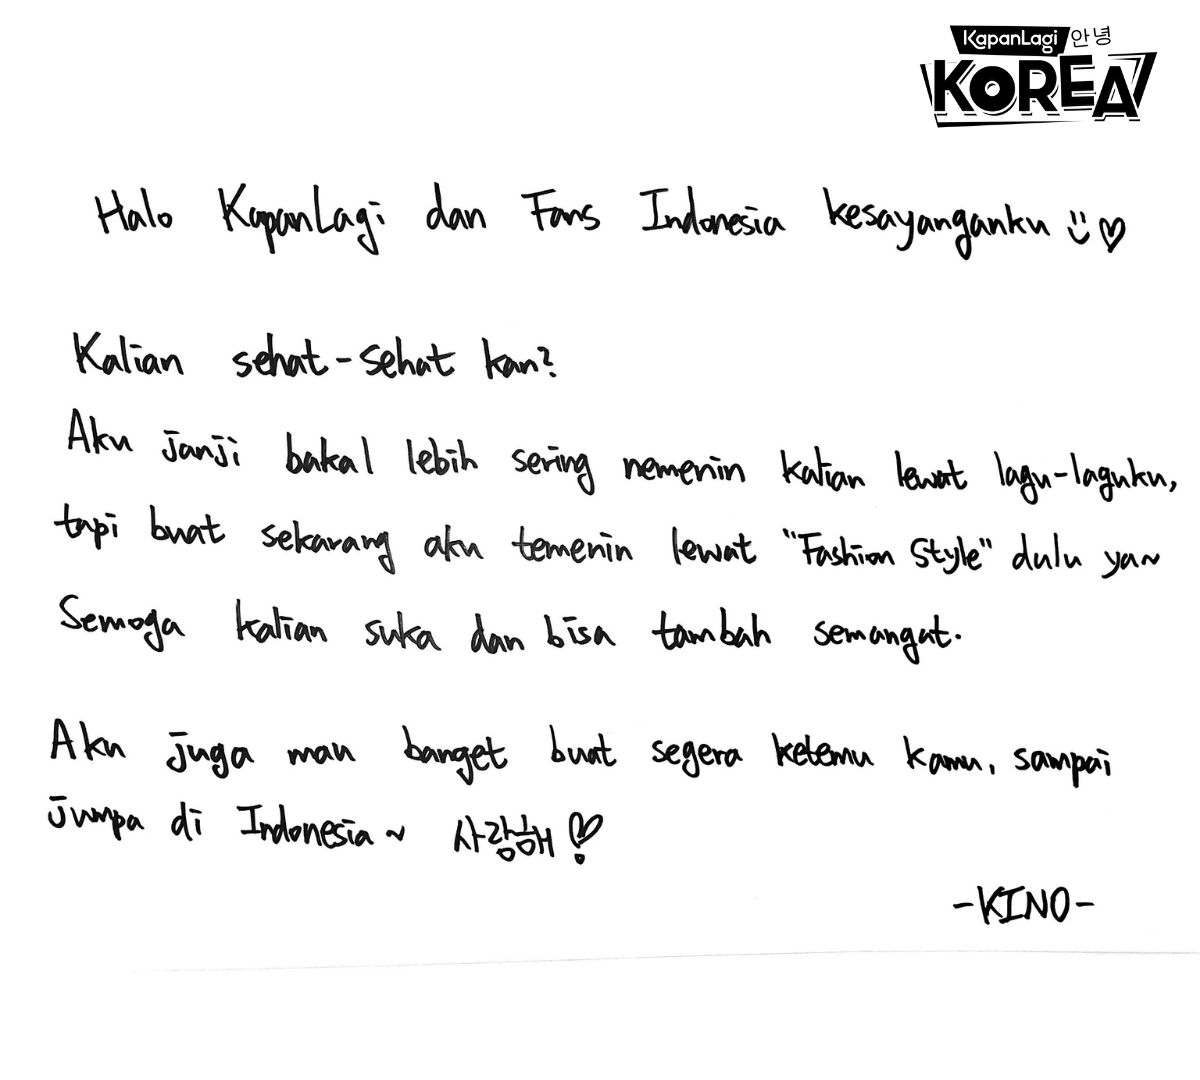 KapanLagi 안녕
KOREA
Halo KapanLagi dan Fans Indonesia kesayanganku
Kalian sehat-sehat kan?
Aku janji bakal lebih sering nemenin kalian lewat lagu-laguku,
tapi buat sekarang aku temenin lewat "Fashion Style" dulu ya~
Semoga kalian suka dan bisa tambah semangat.
Aku juga mau banget buat segera ketemu kamu, sampai
jumpa di Indonesia~ 사랑해
-KINO-